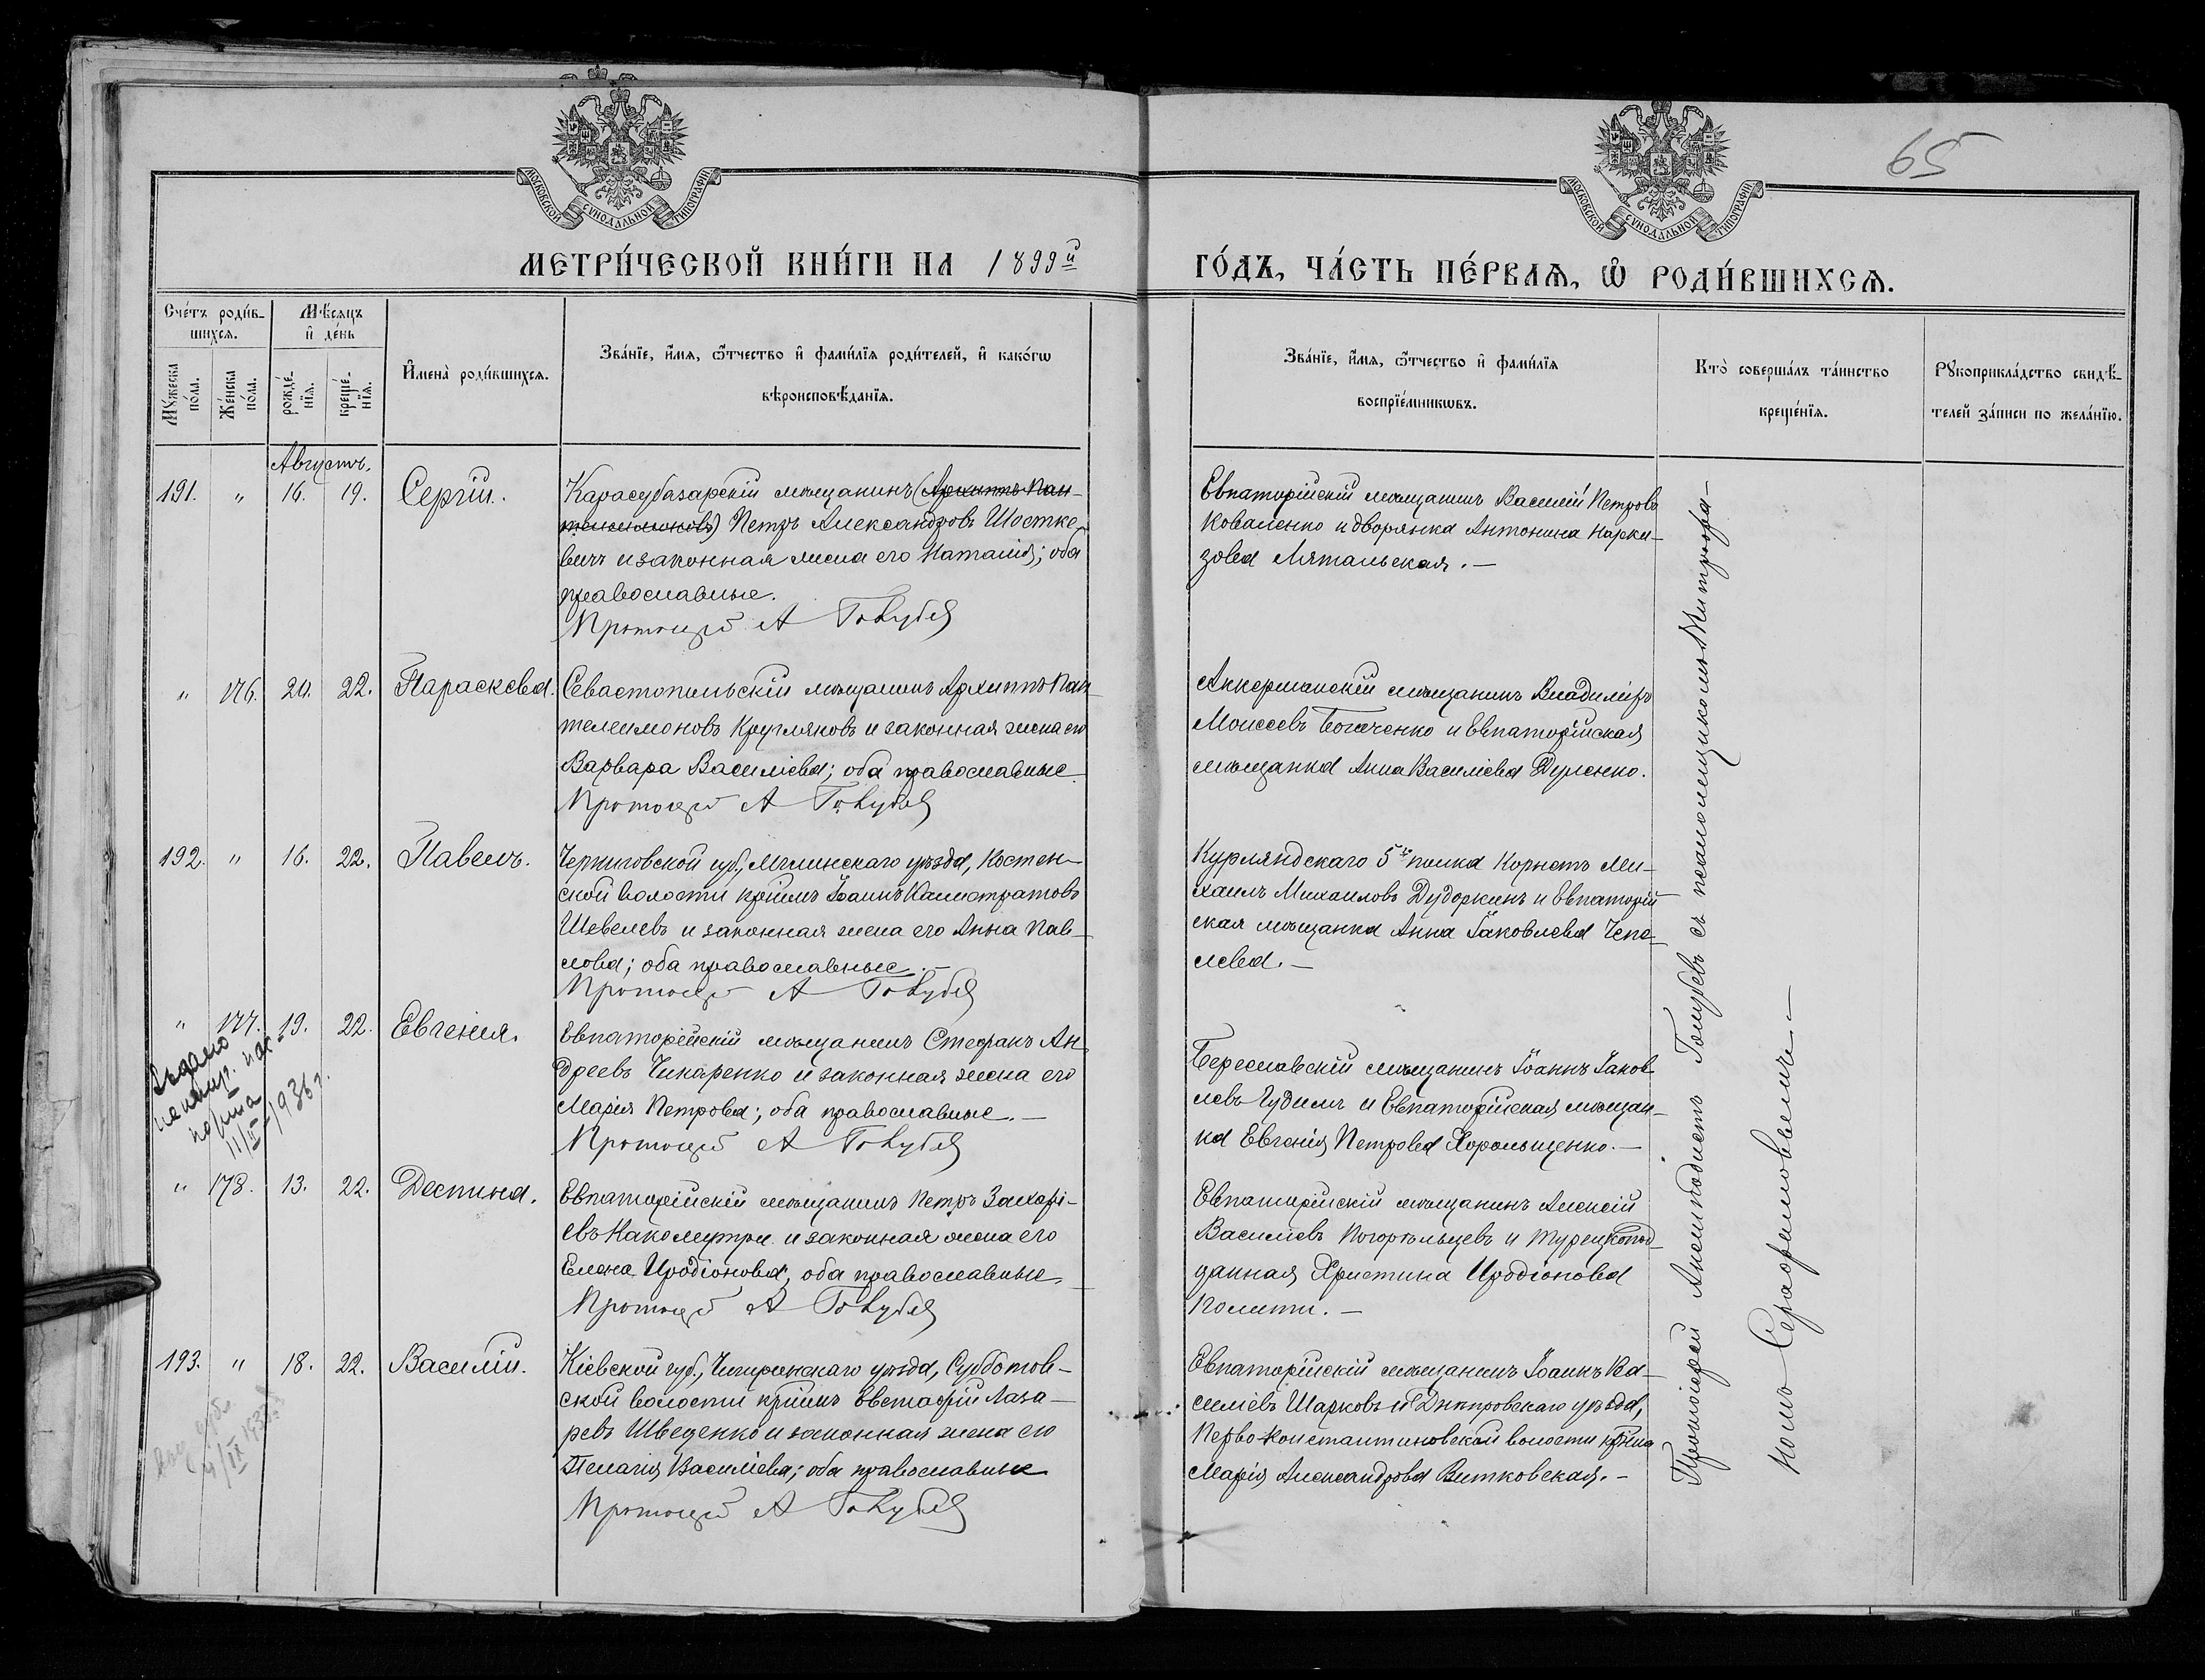 65
МОСКОВСКОЙ СѴНОДАЛЬНОЙ ТИПОГРАФІИ
МОСКОВСКОЙ СѴНОДАЛЬНОЙ ТИПОГРАФІИ
МЕТРИ́ЧЕСКОЙ КНИ́ГИ НА 1899й
ГО́ДЪ, ЧА́СТЬ ПЕ́РВАѦ, Ѽ РОДИ́ВШИХСѦ.
Сче́тъ роди́в-
шихсѧ.
Мѣ́сѧцъ
и҆ де́нь
Мꙋ́жеска по́ла.
Же́нска по́ла.
рожде́-
нїѧ.
креще́-
нїѧ.
И҆мена̀ роди́вшихсѧ.
Зва́нїе, и҆́мѧ, ѻ҆́тчество и҆ фами́лїѧ роди́телей, и҆ како́гѡ
вѣроисповѣ́данїѧ.
Зва́нїе, и҆́мѧ, ѻ҆́тчество и҆ фами́лїѧ
воспрїе́мникѡвъ.
Кто̀ соверша́лъ та́инство
креще́нїѧ.
Рꙋкоприкла́дство свидѣ́-
телей за́писи по жела́нїю.
Августъ.
191. " 16. 19. Сергій.
Карасубазарскій мѣщанинъ (Архиппъ Пан-
телеимоновъ) Петръ Александровъ Шостке-
вичъ и законная жена его Наталія; оба
православные.
Протоіерей А Голубев
Евпаторійскій мѣщанинъ Василій Петровъ
Коваленко и дворянка Антонина Нарки-
зова Лятальская. —
" 176. 20. 22. Параскева.
Севастопольскій мѣщанинъ Архиппъ Пан-
телеимоновъ Кругляковъ и законная жена его
Варвара Василіева; оба православные.
Протоіерей А Голубев
Аккерманскій мѣщанинъ Владиміръ
Моисеевъ Богаченко и Евпаторійская
мѣщанка Анна Василіева Дуленко.
192. " 16. 22. Павелъ.
Черниговской губ., Мглинскаго уѣзда, Костен-
ской волости кр҃инъ Іоаннъ Калистратовъ
Шевелевъ и законная жена его Анна Пав-
лова; оба православные. —
Протоіерей А Голубев
Курляндскаго 5го полка Корнетъ Ми-
хаилъ Михаиловъ Дудоркинъ и Евпаторій-
ская мѣщанка Анна Іаковлева Чепе-
лева. —
" 177. 19. 22. Евгенія.
Евпаторійскій мѣщанинъ Стефанъ Ан-
дреевъ Чикаренко и законная жена его
Марія Петрова; оба православные. —
Протоіерей А Голубев
Бериславскій мѣщанинъ Іоаннъ Іаков-
левъ Гудимъ и Евпаторійская мѣщан-
ка Евгенія Петрова Хорольщенко. —
11/II 1936г.
" 178. 13. 22. Деспина.
Евпаторійскій мѣщанинъ Петръ Захарі-
евъ Какомутри и законная жена его
Елена Иродіонова, оба православные.
Протоіерей А Голубев
Евпаторійскій мѣщанинъ Алексій
Василіевъ Погорѣльцевъ и Турецкопод-
данная Христина Иродіонова
Полити. —
193. " 18. 22. Василій.
Кіевской губ., Чигиринскаго уѣзда, Субботов-
ской волости кр҃инъ Евстафій Лаза-
ревъ Шведенко и законная жена его
Пелагія Василіева; оба православные
Протоіерей А Голубев
Евпаторійскій мѣщанинъ Іоаннъ Ва-
силіевъ Шарковъ и Днѣпровскаго уѣзда,
Перво-Константиновской волости кр҃нка
Марія Александрова Витковская. —
Протоіерей Голубевъ съ псаломщикомъ Митрофа-
номъ Серафимовичемъ. —